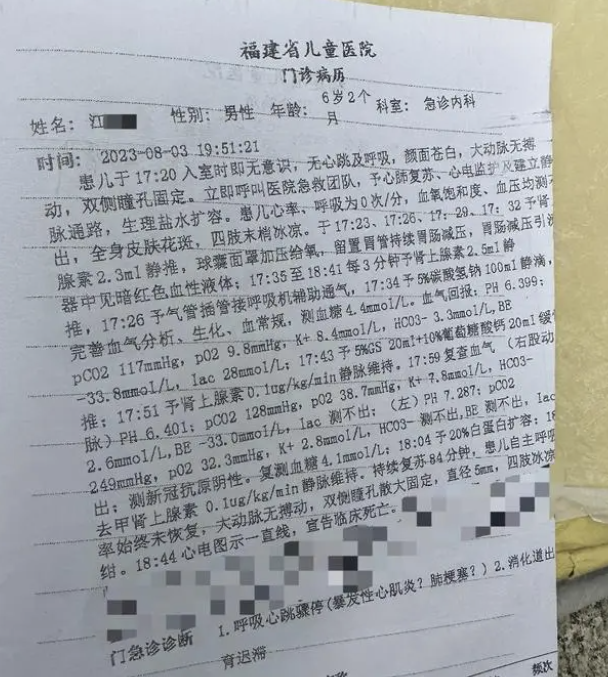 福建省儿童医院
门诊病历
姓名: 江 性别: 男性 年龄: 6岁2个月 科室: 急诊内科
时间: 2023-08-03 19:51:21
患儿于17:20入室时即无意识，无心跳及呼吸，颜面苍白，大动脉无搏
动，双侧瞳孔固定。立即呼叫医院急救团队，予心肺复苏、心电监护及建立静
脉通路，生理盐水扩容。患儿心率、呼吸为0次/分，血氧饱和度、血压均测不
出，全身皮肤花斑，四肢末梢冰凉。于17:23、17:26、17:29、17:32予肾上
腺素2.3ml静推，球囊面罩加压给氧，留置胃管持续胃肠减压，胃肠减压引流
器中见暗红色血性液体；17:35至18:41每3分钟予肾上腺素2.5ml静
推，17:26予气管插管接呼吸机辅助通气，17:34予5%碳酸氢钠100ml静滴，
完善血气分析、生化、血常规，测血糖4.4mmol/L。血气回报：PH 6.399；
pCO2 117mmHg，pO2 9.8mmHg，K+ 8.4mmol/L，HCO3- 3.3mmol/L,BE
-33.8mmol/L，lac 28mmol/L；17:43予5%GS 20ml+10%葡萄糖酸钙20ml缓
推；17:51予肾上腺素0.1ug/kg/min静脉维持。17:59复查血气（右股动
脉）PH 6.401；pCO2 128mmHg，pO2 38.7mmHg，K+ 7.8mmol/L，HCO3-
2.6mmol/L,BE -33.0mmol/L，lac 测不出；（左）PH 7.287；pCO2
249mmHg，pO2 32.3mmHg，K+ 2.8mmol/L，HCO3- 测不出,BE 测不出，lac
出；测新冠抗原阴性。复测血糖4.1mmol/L；18:04予20%白蛋白扩容；18
去甲肾上腺素 0.1ug/kg/min静脉维持。持续复苏84分钟，患儿自主呼吸
率始终未恢复，大动脉无搏动，双侧瞳孔散大固定，直径5mm，四肢冰凉
绀。18:44心电图示一直线，宣告临床死亡。
门急诊诊断 1.呼吸心跳骤停(暴发性心肌炎？肺梗塞？) 2.消化道出
育迟滞
频次